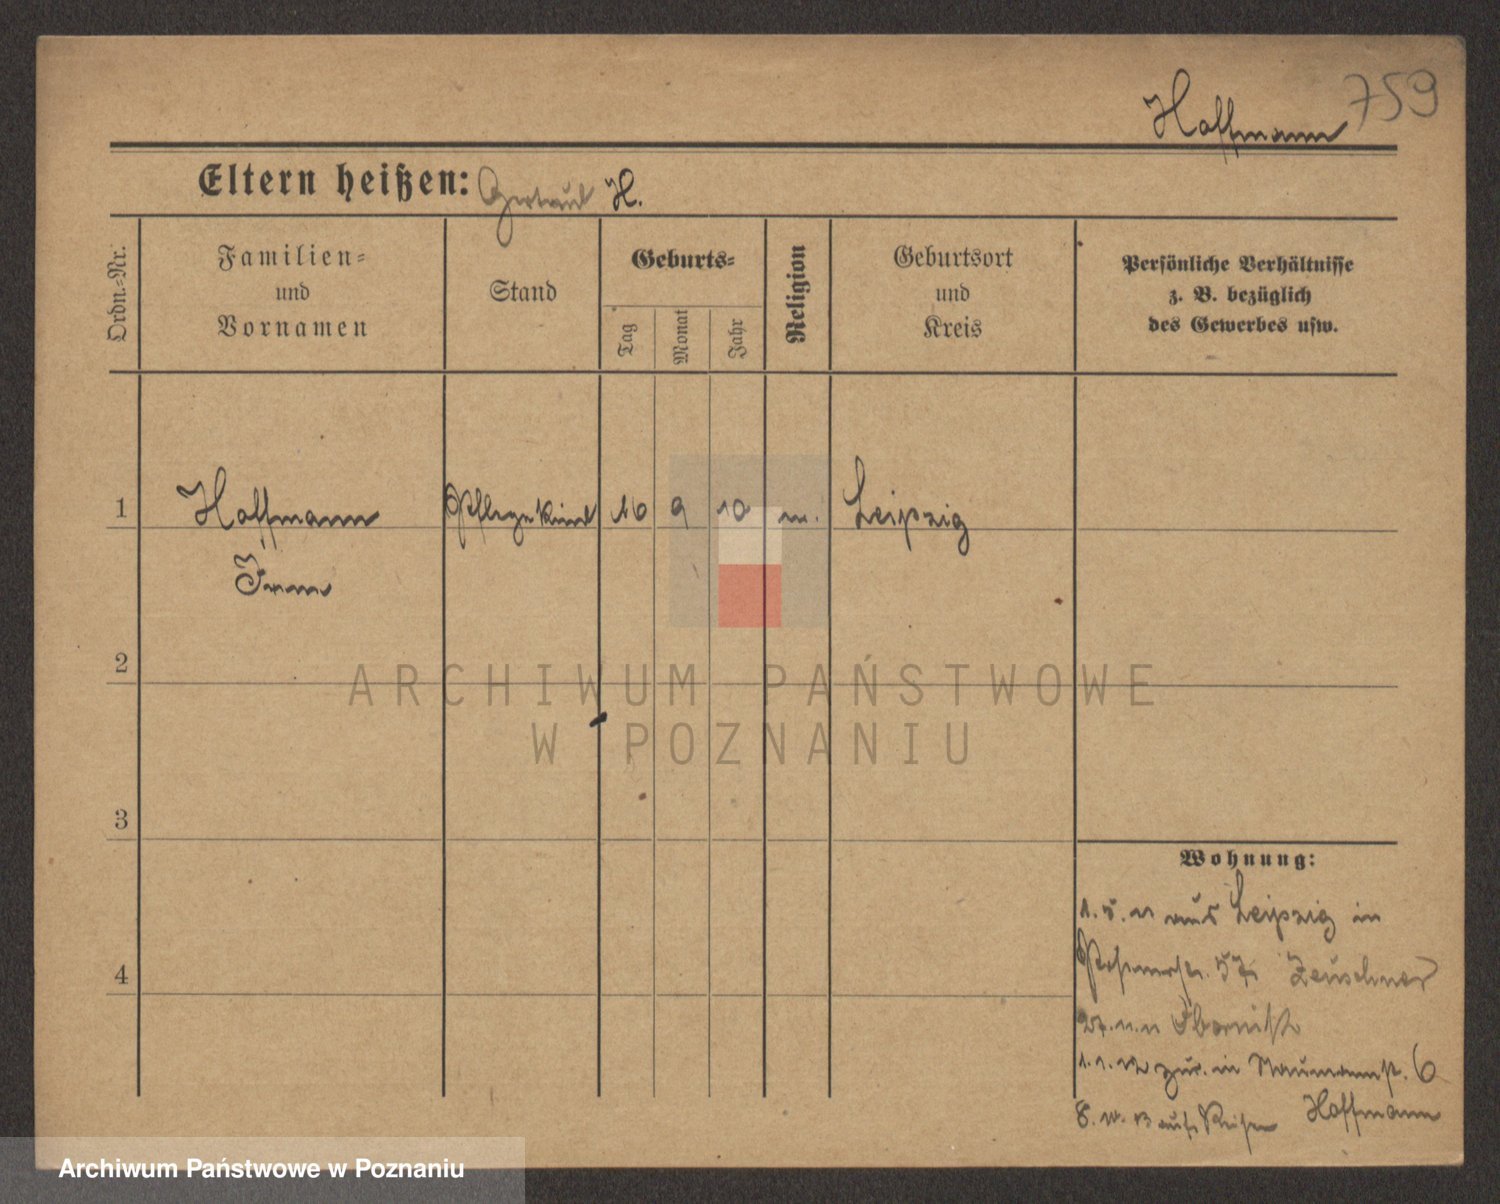 759
Hoffmann
Eltern heißen: Gertrud H.
Ordn.-Nr.
Familien-
und
Vornamen
Stand
Geburts-
Tag
Monat
Jahr
Religion
Geburtsort
und
Kreis
Persönliche Verhältnisse
z. B. bezüglich
des Gewerbes usw.
1 Hoffmann Pflegekind 16 9 10 Leipzig
2
3
4
Wohnung:
1. 5. 11 aus Leipzig in
57 Zeuschner
27. 11. 11 Obornik
1. 1. 12 zur. in Naumannst. 6
8. 10. 13 auf Reisen Hoffmann
ARCHIWUM PAŃSTWOWE
W POZNANIU
Archiwum Państwowe w Poznaniu